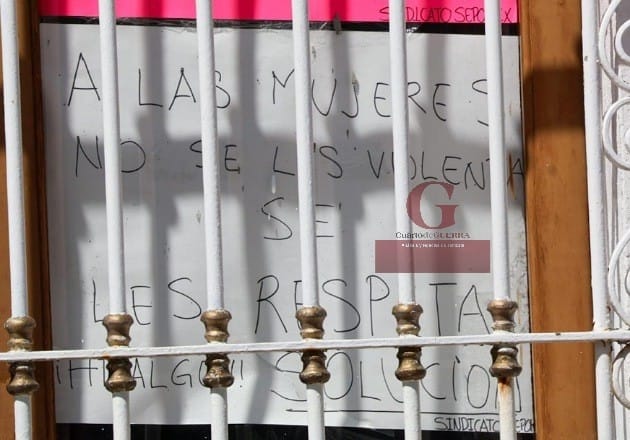 SINDICATO SEPO X
A LAS MUJERES
NO SE LES VIOLENTA
SE
LES RESPETA
¡HIDALGO!! SOLUCION
SINDICATO SEPO
G
Cuarto de GUERRA